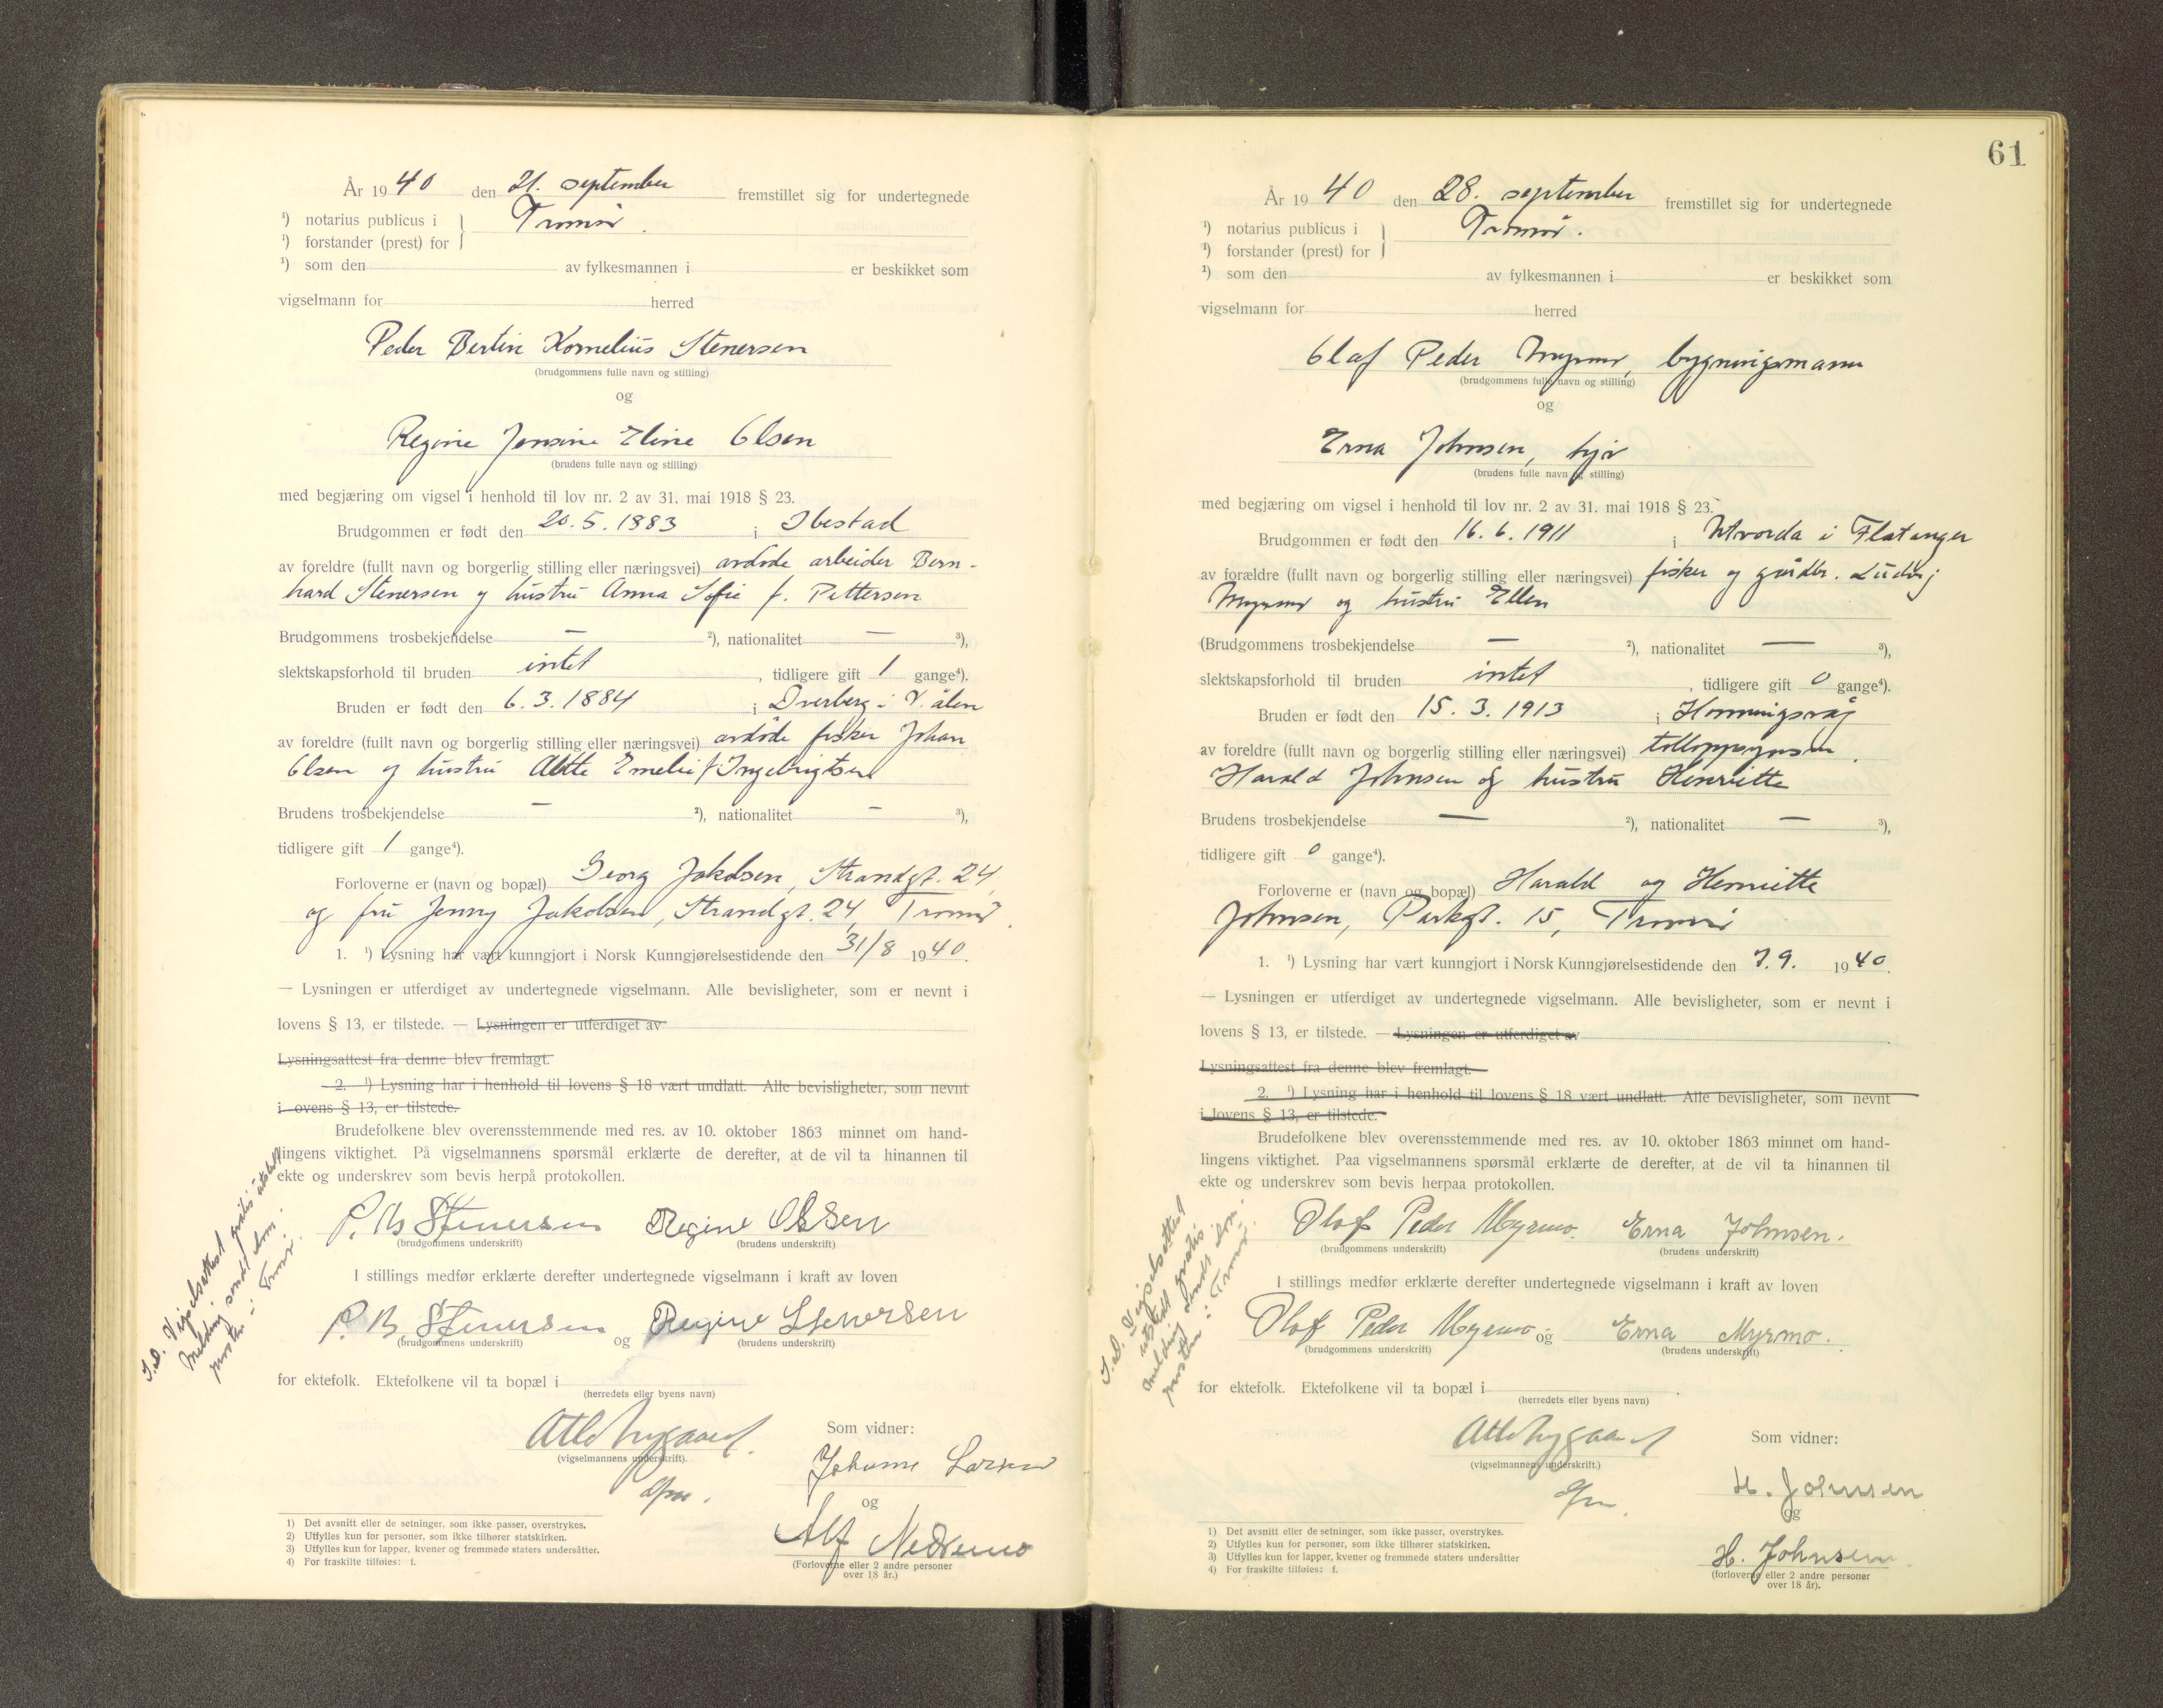 År 1940 den 21. september fremstillet sig for undertegnede
¹) notarius publicus i } Tromsø.
¹) forstander (prest) for
¹) som den av fylkesmannen i er beskikket som
vigselmann for herred
Peder Bertin Kornelius Stenersen
(brudgommens fulle navn og stilling)
og
Regine Jensine Eline Olsen
(brudens fulle navn og stilling)
med begjæring om vigsel i henhold til lov nr. 2 av 31. mai 1918 § 23.
Brudgommen er født den 20. 5. 1883 i Ibestad
av foreldre (fullt navn og borgerlig stilling eller næringsvei) avdøde arbeider Bern-
hard Stenersen og hustru Anna Sofie f. Pettersen
Brudgommens trosbekjendelse — ²), nationalitet — ³),
slektskapsforhold til bruden intet , tidligere gift 1 gange⁴).
Bruden er født den 6. 3. 1884 i Dverberg i V.ålen
av foreldre (fullt navn og borgerlig stilling eller næringsvei) avdøde fisker Johan
Olsen og hustru Emelie f. Ingebrigtsen
Brudens trosbekjendelse — ²), nationalitet — ³),
tidligere gift 1 gange⁴).
Forloverne er (navn og bopæl) Georg Jakobsen, Strandgt. 24,
og fru Jenny Jakobsen, Strandgt. 24, Tromsø.
1. ¹) Lysning har vært kunngjort i Norsk Kunngjørelsestidende den 31/8 1940.
— Lysningen er utferdiget av undertegnede vigselmann. Alle bevisligheter, som er nevnt i
lovens § 13, er tilstede. — Lysningen er utferdiget av
Lysningsattest fra denne blev fremlagt.
2. ¹) Lysning har i henhold til lovens § 18 vært undlatt. Alle bevisligheter, som nevnt
i ovens § 13, er tilstede.
Brudefolkene blev overensstemmende med res. av 10. oktober 1863 minnet om hand-
lingens viktighet. På vigselmannens spørsmål erklærte de derefter, at de vil ta hinannen til
ekte og underskrev som bevis herpå protokollen.
P. B. Stenersen Regine Olsen
(brudgommens underskrift) (brudens underskrift)
I stillings medfør erklærte derefter undertegnede vigselmann i kraft av loven
P. B. Stenersen og Regine Stenersen
(brudgommens underskrift) (brudens underskrift)
for ektefolk. Ektefolkene vil ta bopæl i
(herredets eller byens navn)
S.d. Vigselsattest gratis utstedt
melding sendt
presten i Tromsø.
Som vidner:
Atle Nygaard.
(vigselmannens underskrift).
Johanne Larsen
og
Alf Nedremo
(Forloverne eller 2 andre personer
over 18 år.)
1) Det avsnitt eller de setninger, som ikke passer, overstrykes.
2) Utfylles kun for personer, som ikke tilhører statskirken.
3) Utfylles kun for lapper, kvener og fremmede staters undersåtter.
4) For fraskilte tilføies: f.
61
År 1940 den 28. september fremstillet sig for undertegnede
¹) notarius publicus i } Tromsø.
¹) forstander (prest) for
¹) som den av fylkesmannen i er beskikket som
vigselmann for herred
Olaf Peder Myrmo, bygningsmann
(brudgommens fulle navn og stilling)
og
Erna Johnsen, hjv
(brudens fulle navn og stilling)
med begjæring om vigsel i henhold til lov nr. 2 av 31. mai 1918 § 23.
Brudgommen er født den 16. 6. 1911 i Utvorda i Flatanger
av forældre (fullt navn og borgerlig stilling eller næringsvei) fisker og gårdbr. Ludvig
Myrmo og hustru Ellen
(Brudgommens trosbekjendelse — ²), nationalitet — ³),
slektskapsforhold til bruden intet , tidligere gift 0 gange⁴).
Bruden er født den 15. 3. 1913 i Honningsvåg
av foreldre (fullt navn og borgerlig stilling eller næringsvei) tolloppsynsm.
Harald Johnsen og hustru Henriette
Brudens trosbekjendelse — ²), nationalitet — ³),
tidligere gift 0 gange⁴).
Forloverne er (navn og bopæl) Harald og Henriette
Johnsen, Parkgt. 15, Tromsø
1. ¹) Lysning har vært kunngjort i Norsk Kunngjørelsestidende den 7.9. 1940.
— Lysningen er utferdiget av undertegnede vigselmann. Alle bevisligheter, som er nevnt i
lovens § 13, er tilstede. — Lysningen er utferdiget av
Lysningsattest fra denne blev fremlagt.
2. ¹) Lysning har i henhold til lovens § 18 vært undlatt. Alle bevisligheter, som nevnt
i lovens § 13, er tilstede.
Brudefolkene blev overensstemmende med res. av 10. oktober 1863 minnet om hand-
lingens viktighet. Paa vigselmannens spørsmål erklærte de derefter, at de vil ta hinannen til
ekte og underskrev som bevis herpaa protokollen.
Olaf Peder Myrmo. Erna Johnsen.
(brudgommens underskrift) (brudens underskrift)
I stillings medfør erklærte derefter undertegnede vigselmann i kraft av loven
Olaf Peder Myrmo og Erna Myrmo.
(brudgommens underskrift) (brudens underskrift)
for ektefolk. Ektefolkene vil ta bopæl i
(herredets eller byens navn)
S.d. Vigselsattest
utstedt gratis
melding sendt
presten i Tromsø.
Som vidner:
Atle Nygaard
(vigselmannens underskrift.)
H. Johnsen
og
H. Johnsen.
(forloverne eller 2 andre personer
over 18 år).
1) Det avsnitt eller de setninger, som ikke passer, overstrykes.
2) Utfylles kun for personer, som ikke tilhører statskirken.
3) Utfylles kun for lapper, kvener og fremmede staters undersåtter
4) For fraskilte tilføies: f.